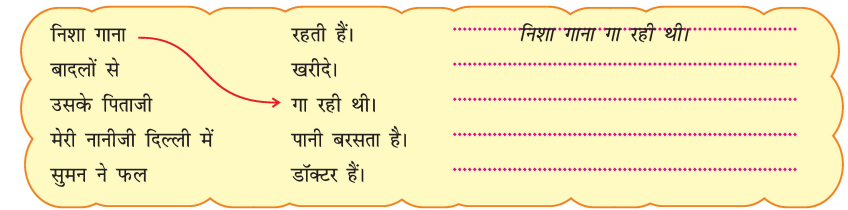 निशा गाना रहती हैं। निशा गाना गा रही थी।
बादलों से खरीदे।
उसके पिताजी गा रही थी।
मेरी नानीजी दिल्ली में पानी बरसता है।
सुमन ने फल डॉक्टर हैं।